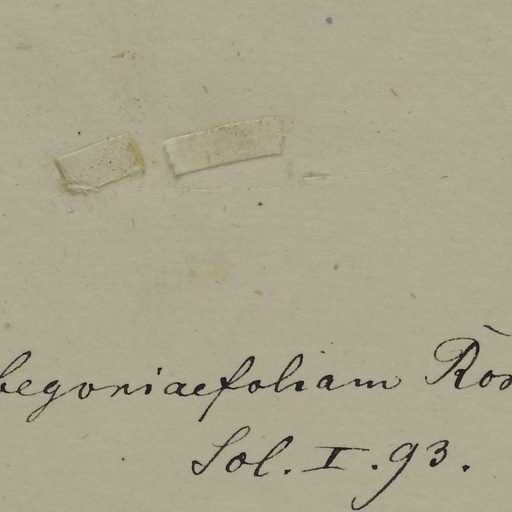 begoniaefoliam Rox
Sol. I. 93.